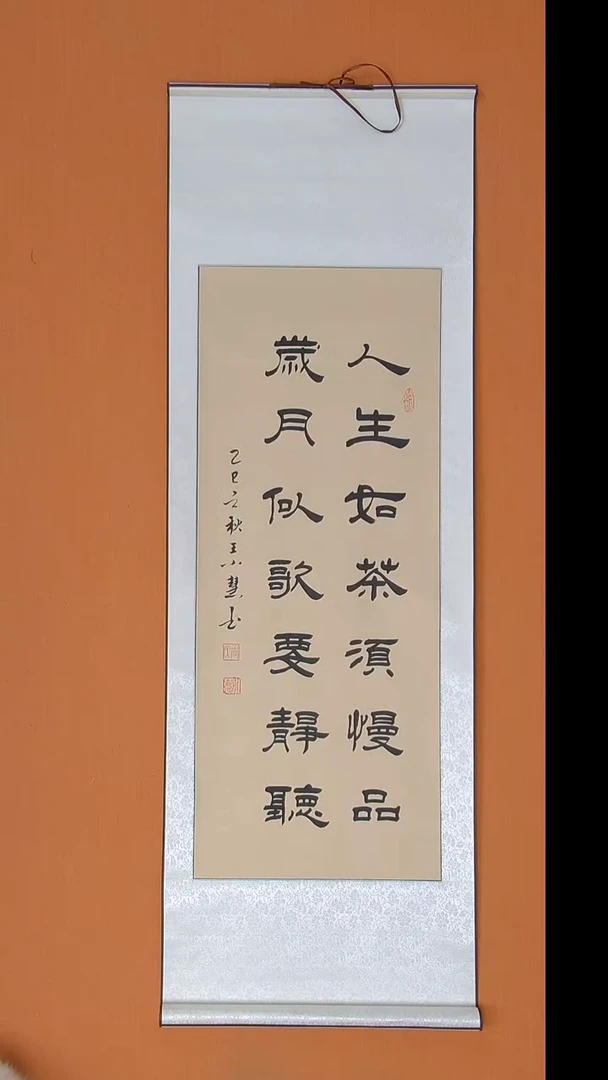 人生如茶須慢品
歲月似歌要靜聽
乙巳之秋王小慧書